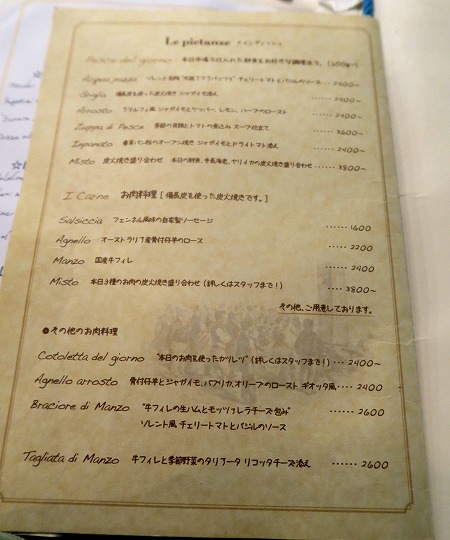 Le pietanze メインディッシュ
Pesca del giorno 本日市場で仕入れた鮮魚をお好きな調理法で。(100gr~)
Acqua pazza ソレント湾風 チェリートマトとバジルのソース ・・・2400~
Griglia 備長炭を使った炭火焼き ジャガイモ添え ・・・・2400~
Arrosto アマルフィ風 ジャガイモとケッパー、レモン、ハーブのロースト ・・・・2400~
Zuppa di Pesce 季節の魚貝とトマトの煮込み スープ仕立て ・・・・3600~
Impanato 香草パン粉のオーブン焼き ジャガイモとドライトマト添え ・・・・2400~
Misto 炭火焼き盛り合わせ 本日の鮮魚、手長海老、ヤリイカの炭火焼き盛り合わせ ・・・・3800~
I Carne お肉料理 [備長炭を使った炭火焼きです。]
Salsiccia フェンネル風味の自家製ソーセージ ・・・・・・1600
Agnello オーストラリア産骨付仔羊のロース ・・・・・・2200
Manzo 国産牛フィレ ・・・・・・2400
Misto 本日3種のお肉の炭火焼き盛り合わせ (詳しくはスタッフまで!) ・・・・3800~
その他、ご用意しております。
●その他のお肉料理
Cotoletta del giorno "本日のお肉を使ったカツレツ" (詳しくはスタッフまで!) ・・・2400~
Agnello arrosto 骨付仔羊とジャガイモ、パプリカ、オリーブのロースト ギオッタ風・・・・2400
Braciore di Manzo "牛フィレの生ハムとモッツァレラチーズ包み" ・・・・・・2600
ソレント風 チェリートマトとバジルのソース
Tagliata di Manzo 牛フィレと季節野菜のタリアータ リコッタチーズ添え ・・・・・・2600